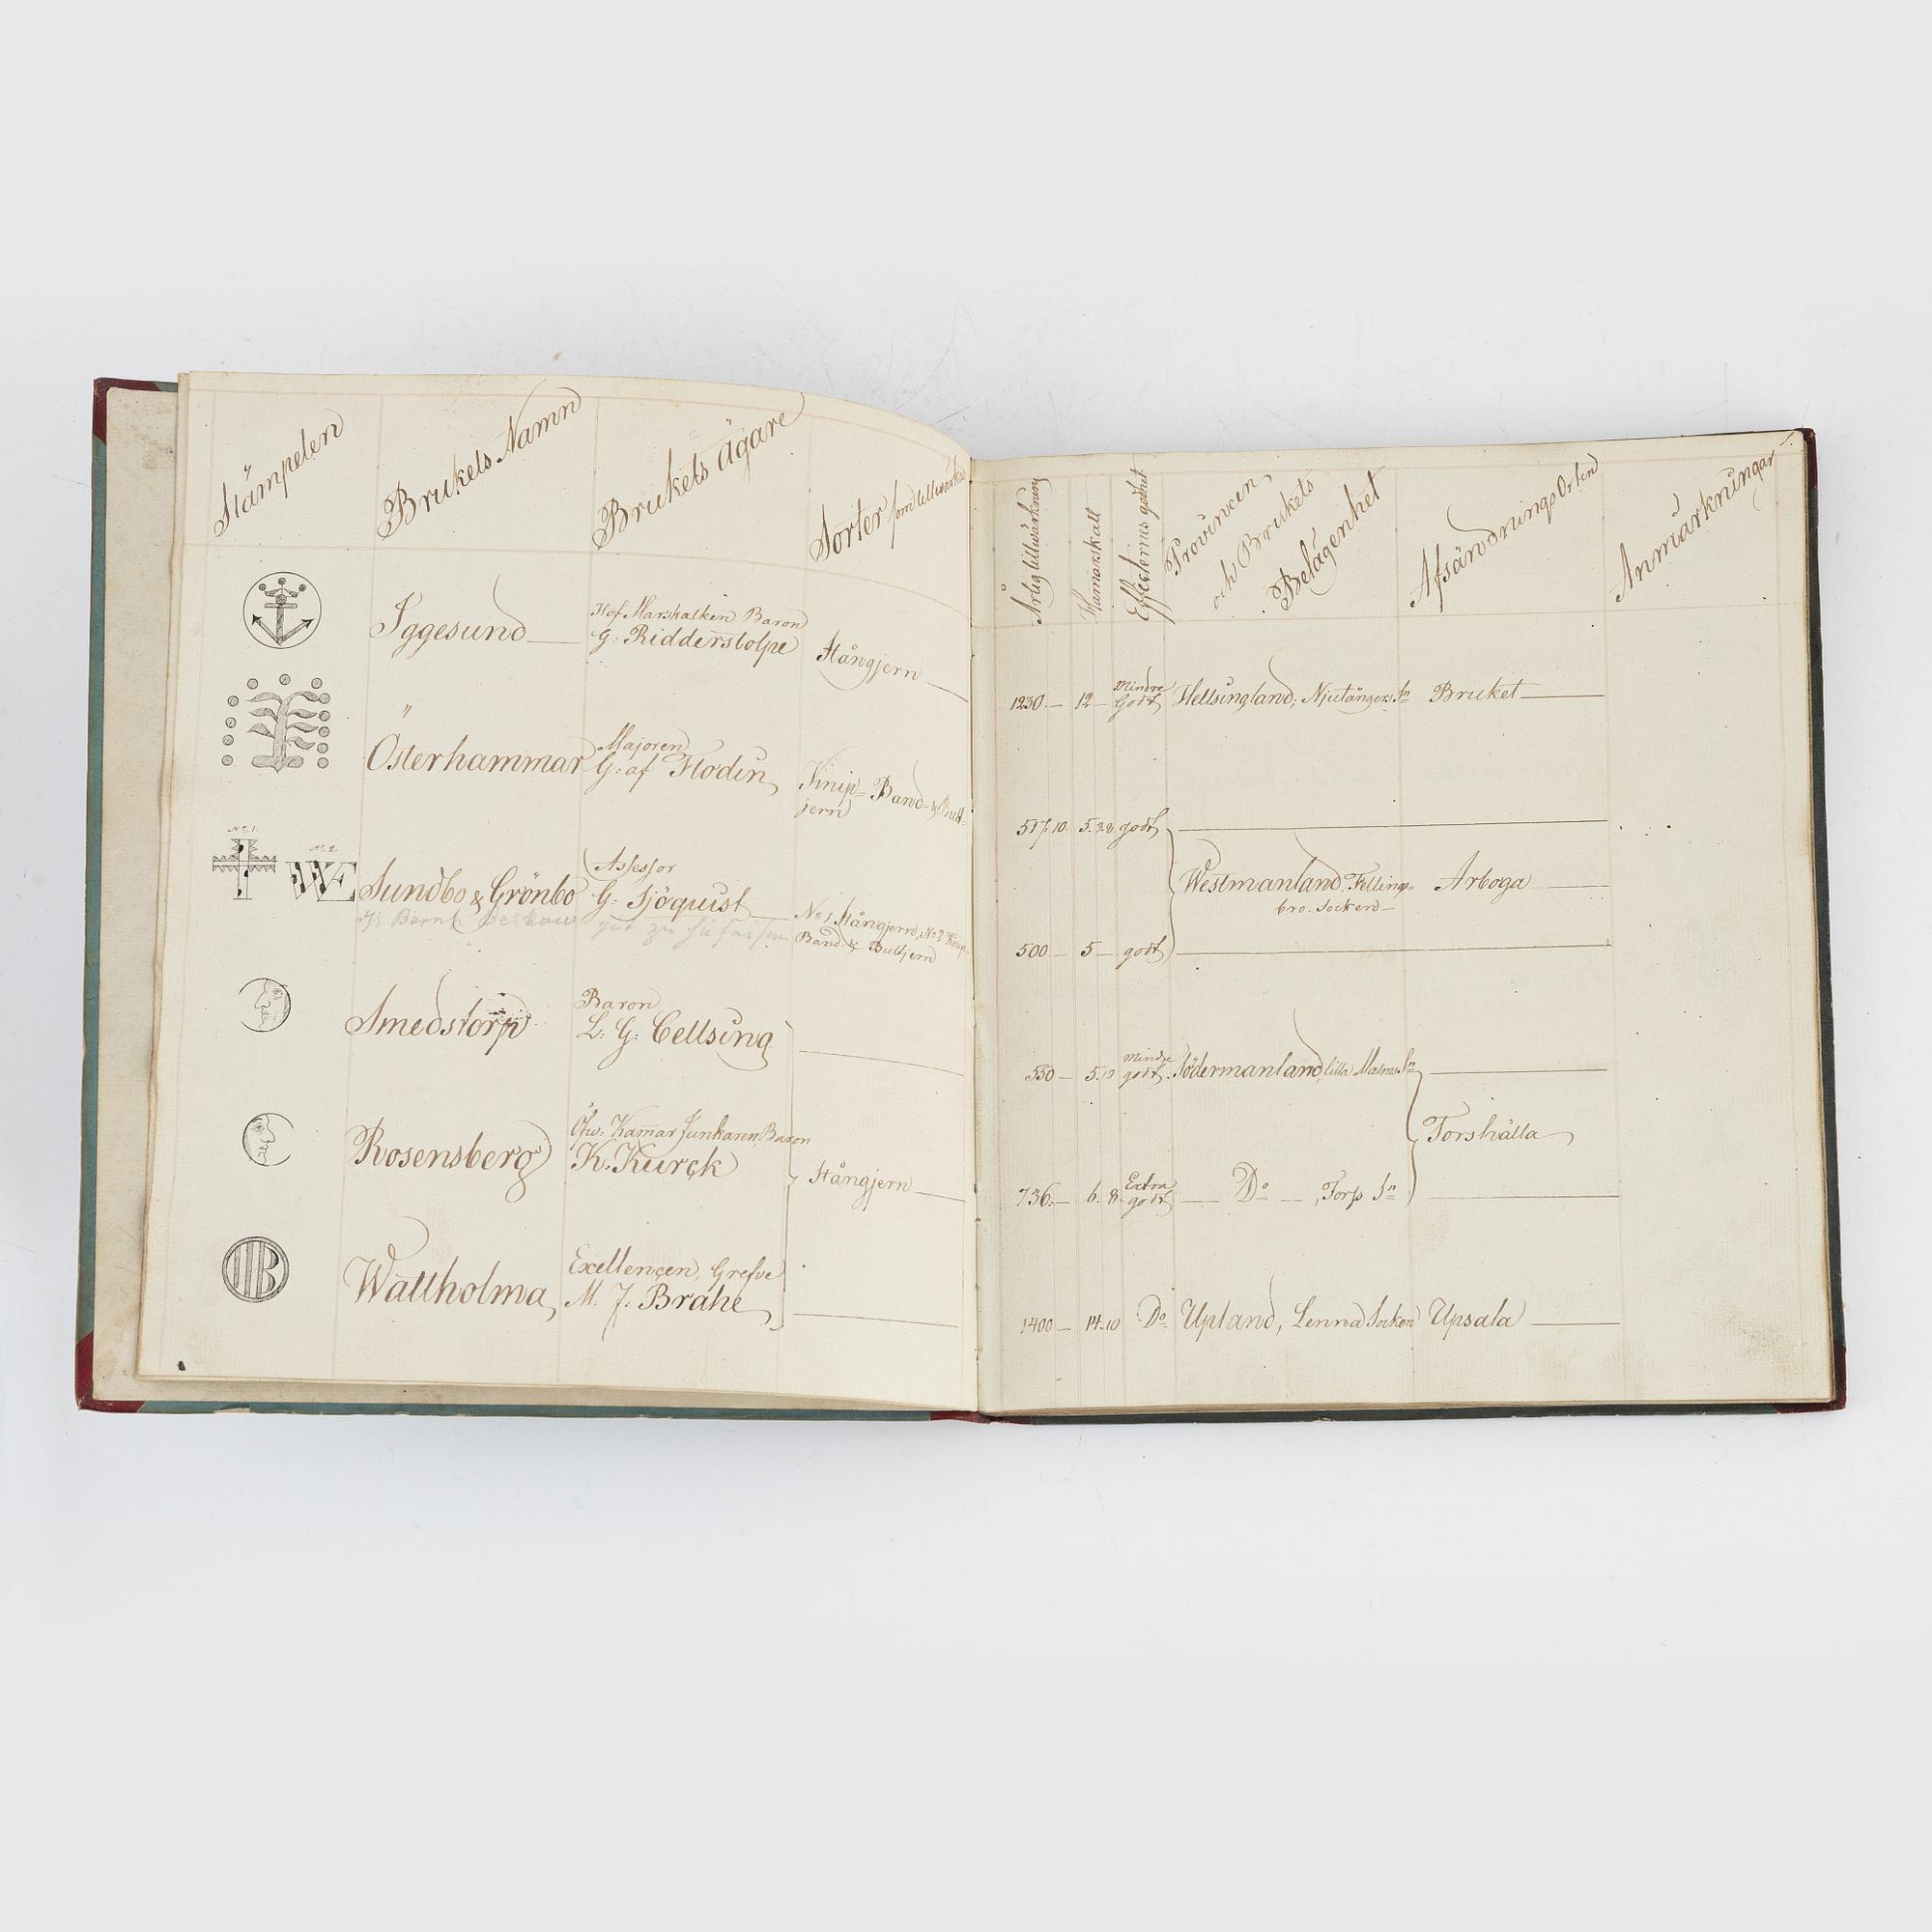 Stämpelen
Brukets Namn
Brukets Ägare
Sorter som tillwärkas
Iggesund
Hof Marskalken Baron
G: Ridderstolpe
Stångjern
Österhammar
Majoren
G: af Flodin
Knip- Band- & Bult-
jern
No 1.
No 2.
WE
Sundbo & Grönbo
Assessor
G: Sjöquist
No 1 Stångjern, No 2 Knip-
Band- & Bultjern
Smedstorp
Baron
L: G: Cellsing
Rosensberg
Öfw: Kamar Junkaren, Baron
K: Kurck
Stångjern
B
Wattholma
Exellencen, Grefve
M: J: Brahe
1.
Årlig tillwärkning
Hamarskatt
Effecternes godhet
Provincen
och Brukets
Belägenhet
Afsändnings Orten
Anmärkningar
1230 12 Mindre
Godt Hellsingland, Njutångers Sn Bruket
517.10. 5. 3.8 godt
Westmanland, Fellings-
bro. Socken
Arboga
500 5 godt
550 5.10 Mindre
godt. Södermanland, lilla Malms Sn
Torshälla
736. 6. 8. Extra
godt Do , Torp Sn
1400 14.10 Do Upland, Lenna Socken Upsala